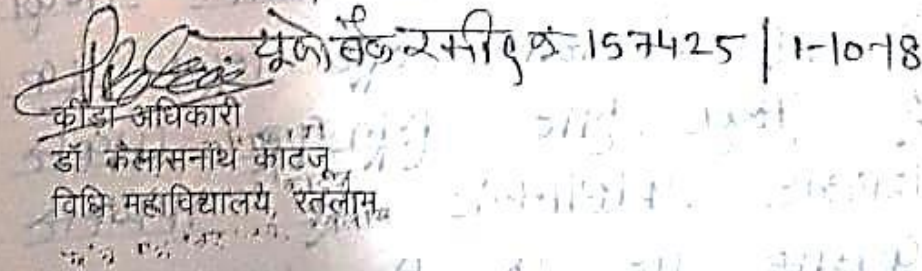 यूको बैंक रसीद क्र 157425 | 1-10-18
क्रीडा अधिकारी
डॉ कैलासनाथ काटजू
विधि महाविद्यालय, रतलाम